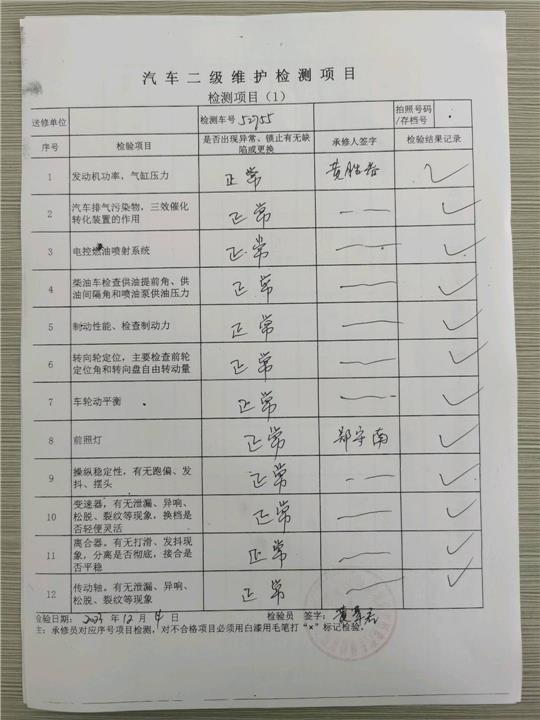 汽车二级维护检测项目
检测项目（1）
送修单位 检测车号 52755 拍照号码/存档号
序号 检验项目 是否出现异常、锁止有无缺陷或更换 承修人签字 检验结果记录
1 发动机功率，气缸压力 正常 ✓
2 汽车排气污染物，三效催化转化装置的作用 正常 —— ✓
3 电控燃油喷射系统 正常 —— ✓
4 柴油车检查供油提前角、供油间隔角和喷油泵供油压力 正常 —— ✓
5 制动性能、检查制动力 正常 —— ✓
6 转向轮定位，主要检查前轮定位角和转向盘自由转动量 正常 —— ✓
7 车轮动平衡 正常 —— ✓
8 前照灯 正常 郑宇南 ✓
9 操纵稳定性，有无跑偏、发抖、摆头 正常 —— ✓
10 变速器，有无泄漏、异响、松脱、裂纹等现象，换档是否轻便灵活 正常 —— ✓
11 离合器。有无打滑、发抖现象，分离是否彻底，接合是否平稳 正常 —— ✓
12 传动轴。有无泄漏、异响、松脱、裂纹等现象 正常 —— ✓
检验日期： 2023 年 12 月 4 日 检验员 签字：
注：承修员对应序号项目检测，对不合格项目必须用白漆用毛笔打“×”标记检验。